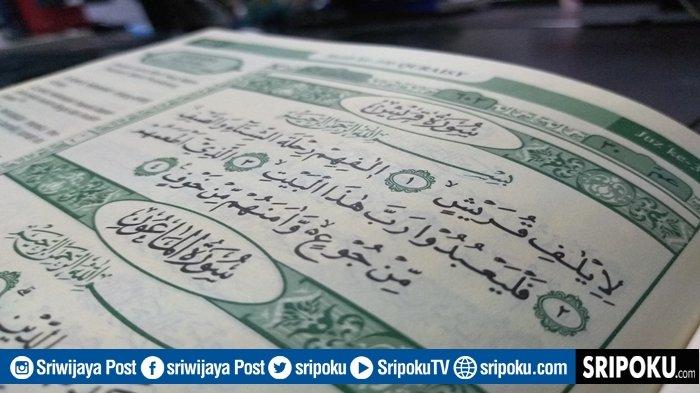 QURAISY
Juz ke
٦٠٢
٣٠
سُوْرَةُ قُرَيْشٍ
بِسْمِ اللّٰهِ الرَّحْمٰنِ الرَّحِيْمِ
لِاِيْلٰفِ قُرَيْشٍۙ ١ اٖلٰفِهِمْ رِحْلَةَ الشِّتَاۤءِ وَالصَّيْفِۚ
٢ فَلْيَعْبُدُوْا رَبَّ هٰذَا الْبَيْتِۙ ٣ الَّذِيْٓ اَطْعَمَهُمْ
مِّنْ جُوْعٍ ەۙ وَّاٰمَنَهُمْ مِّنْ خَوْفٍ ٤
سُوْرَةُ الْمَاعُوْنِ
بِسْمِ اللّٰهِ الرَّحْمٰنِ الرَّحِيْمِ
الدِّيْنِ
Sriwijaya Post sriwijaya Post sripoku SripokuTV sripoku.com SRIPOKU.com